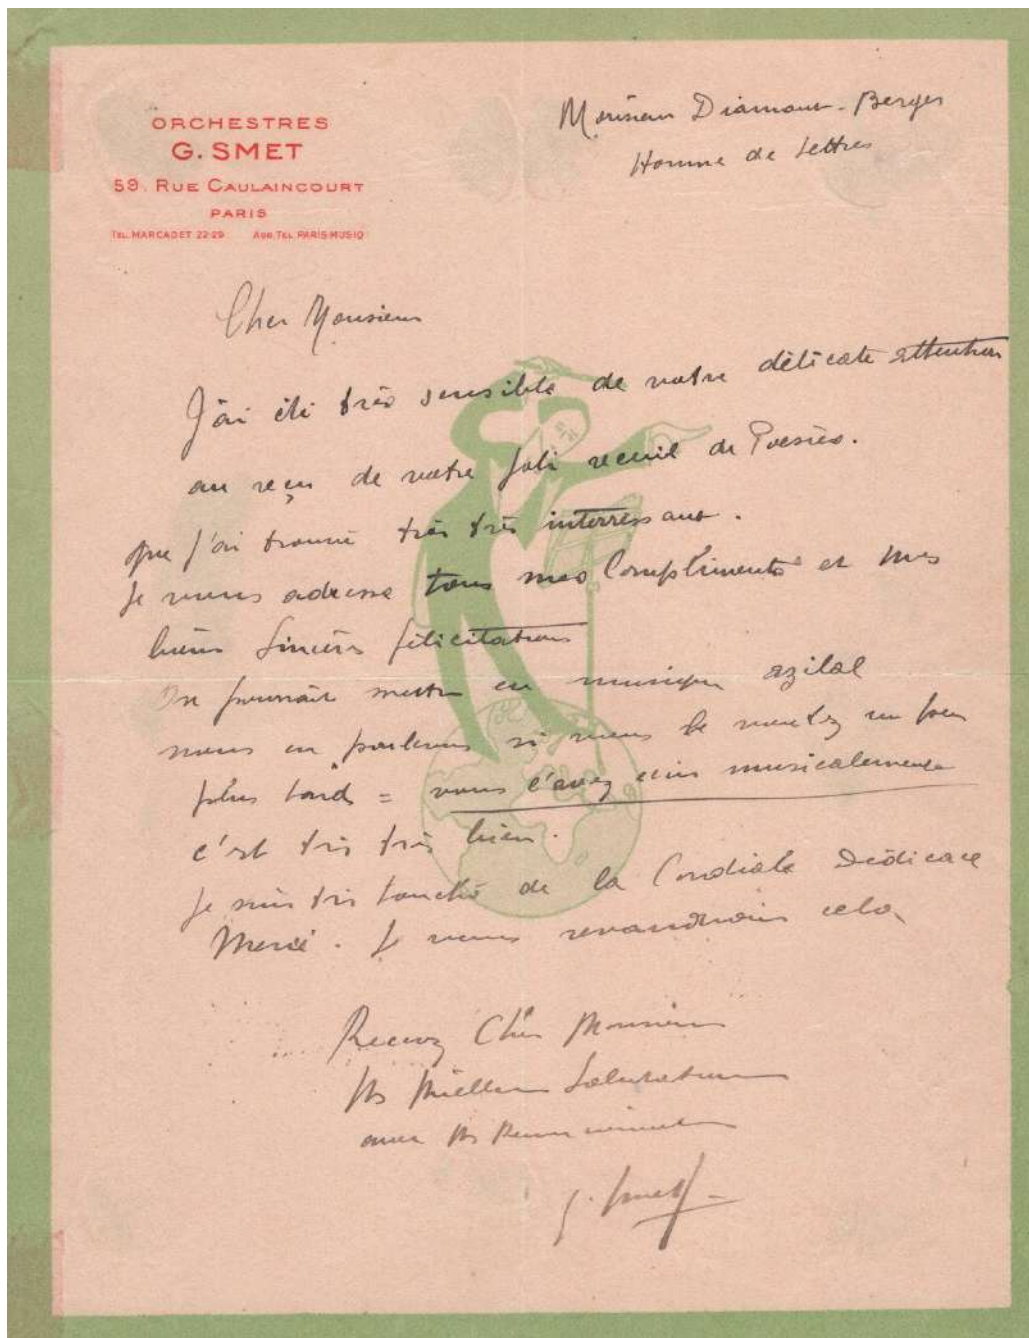 ORCHESTRES
G. SMET
59, RUE CAULAINCOURT
PARIS
TEL. MARCADET 22-29 ADR. TEL. PARIS-MUSIQ
Monsieur Diamant-Berger
Homme de Lettres
Cher Monsieur
J'ai été très sensible de votre délicate attention
au reçu de votre joli recueil de Poesies.
que j'ai trouvé très très interressant.
Je vous adresse tous mes Compliments et mes
biens Sincères félicitations
On pourrait mettre en musique azilal
nous en parlerons si vous le voulez un peu
plus tard = vous l'avez musicalement
c'est très très bien.
Je suis très touché de la Cordiale Dédicace
Merci. Je vous revaudrais cela
Recevez Cher Monsieur
Ms Meilleurs Salutations
avec Ms Remerciements
G. Smet